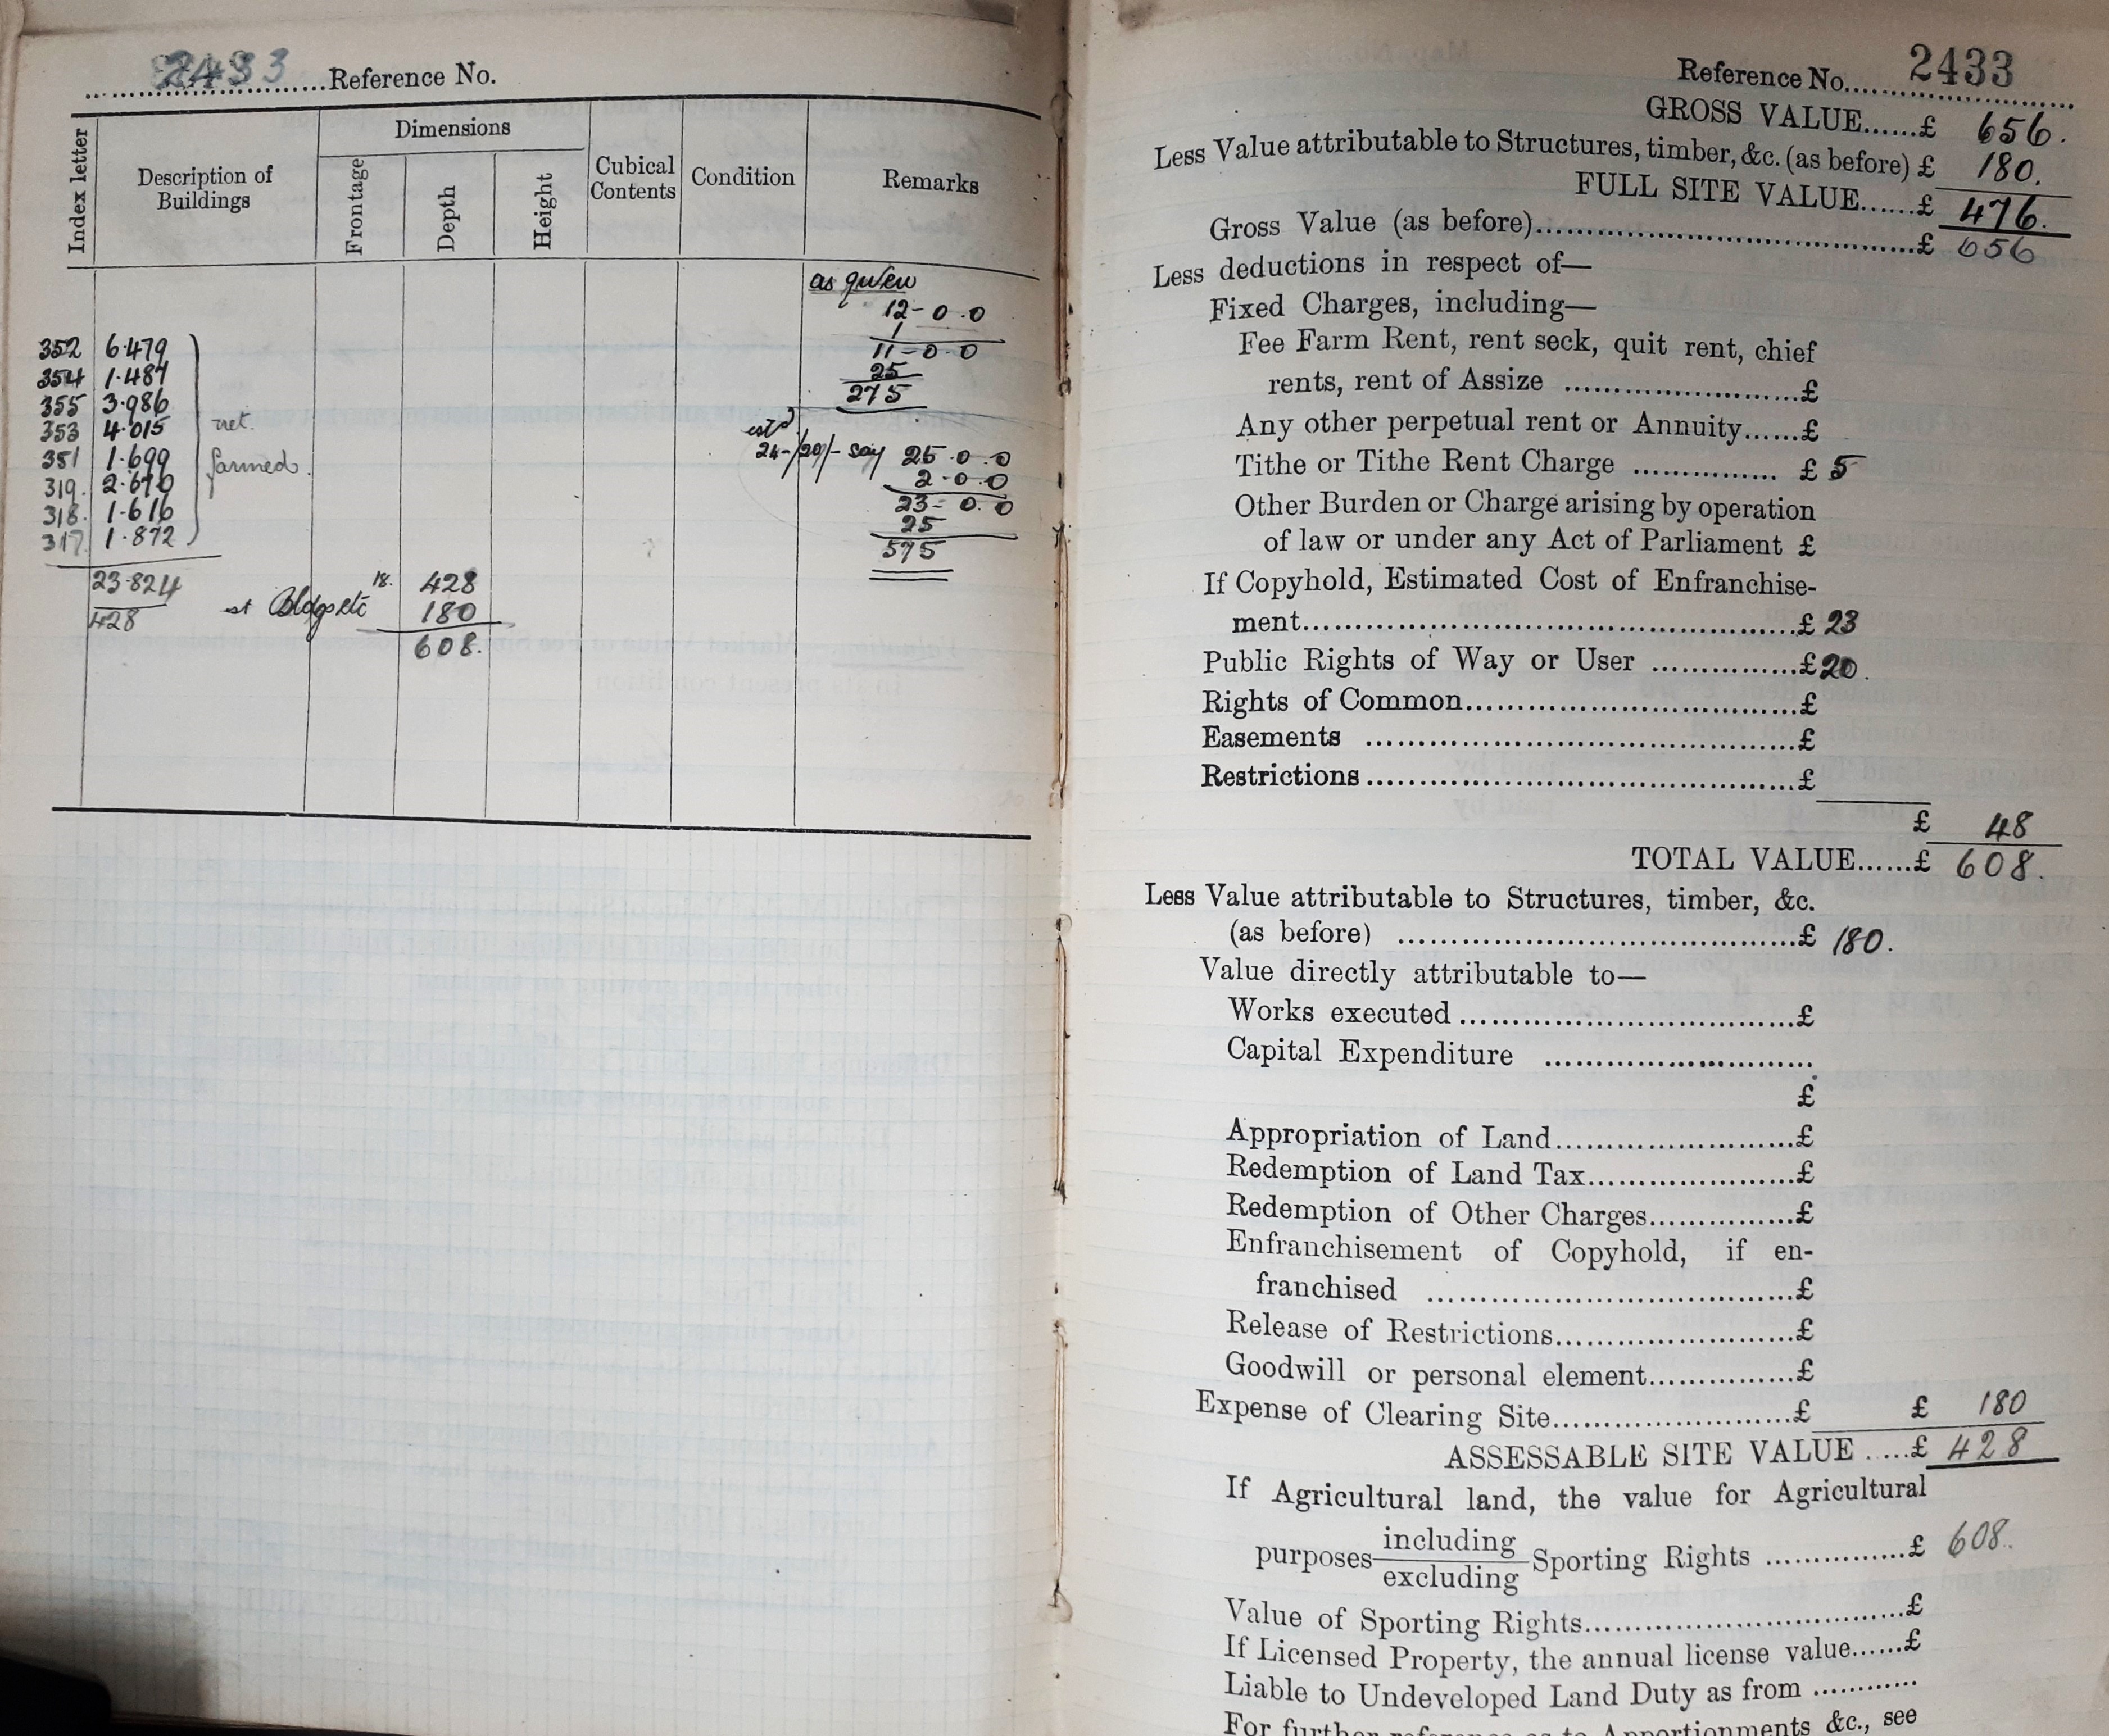 2433 Reference No.
Index letter
Description of Buildings
Dimensions
Frontage
Depth
Height
Cubical Contents
Condition
Remarks
as given
12-0.0
1
11-0.0
25
275
352 6.479
354 1.487
355 3.986
353 4.015 vet.
351 1.699 farmed.
319. 2.670
318. 1.616
317. 1.872
estd
24-/20/- say 25.0.0
2-0.0
23-0.0
25
575
23.824 18. 428
428 st Bldgs etc 180
608.
Reference No. 2433
GROSS VALUE......£ 656.
Less Value attributable to Structures, timber, &c. (as before) £ 180.
FULL SITE VALUE......£ 476.
Gross Value (as before)......£ 656
Less deductions in respect of—
Fixed Charges, including—
Fee Farm Rent, rent seck, quit rent, chief
rents, rent of Assize ......£
Any other perpetual rent or Annuity......£
Tithe or Tithe Rent Charge ...... £ 5
Other Burden or Charge arising by operation
of law or under any Act of Parliament £
If Copyhold, Estimated Cost of Enfranchise-
ment......£ 23
Public Rights of Way or User ......£ 20.
Rights of Common......£
Easements ......£
Restrictions......£
£ 48
TOTAL VALUE......£ 608.
Less Value attributable to Structures, timber, &c.
(as before) ......£ 180.
Value directly attributable to—
Works executed......£
Capital Expenditure ......
£
Appropriation of Land......£
Redemption of Land Tax......£
Redemption of Other Charges......£
Enfranchisement of Copyhold, if en-
franchised ......£
Release of Restrictions......£
Goodwill or personal element......£
Expense of Clearing Site......£ £ 180
ASSESSABLE SITE VALUE .....£ 428
If Agricultural land, the value for Agricultural
purposes including excluding Sporting Rights ......£ 608.
Value of Sporting Rights......£
If Licensed Property, the annual license value......£
Liable to Undeveloped Land Duty as from ......
For further reference as to Apportionments &c., see